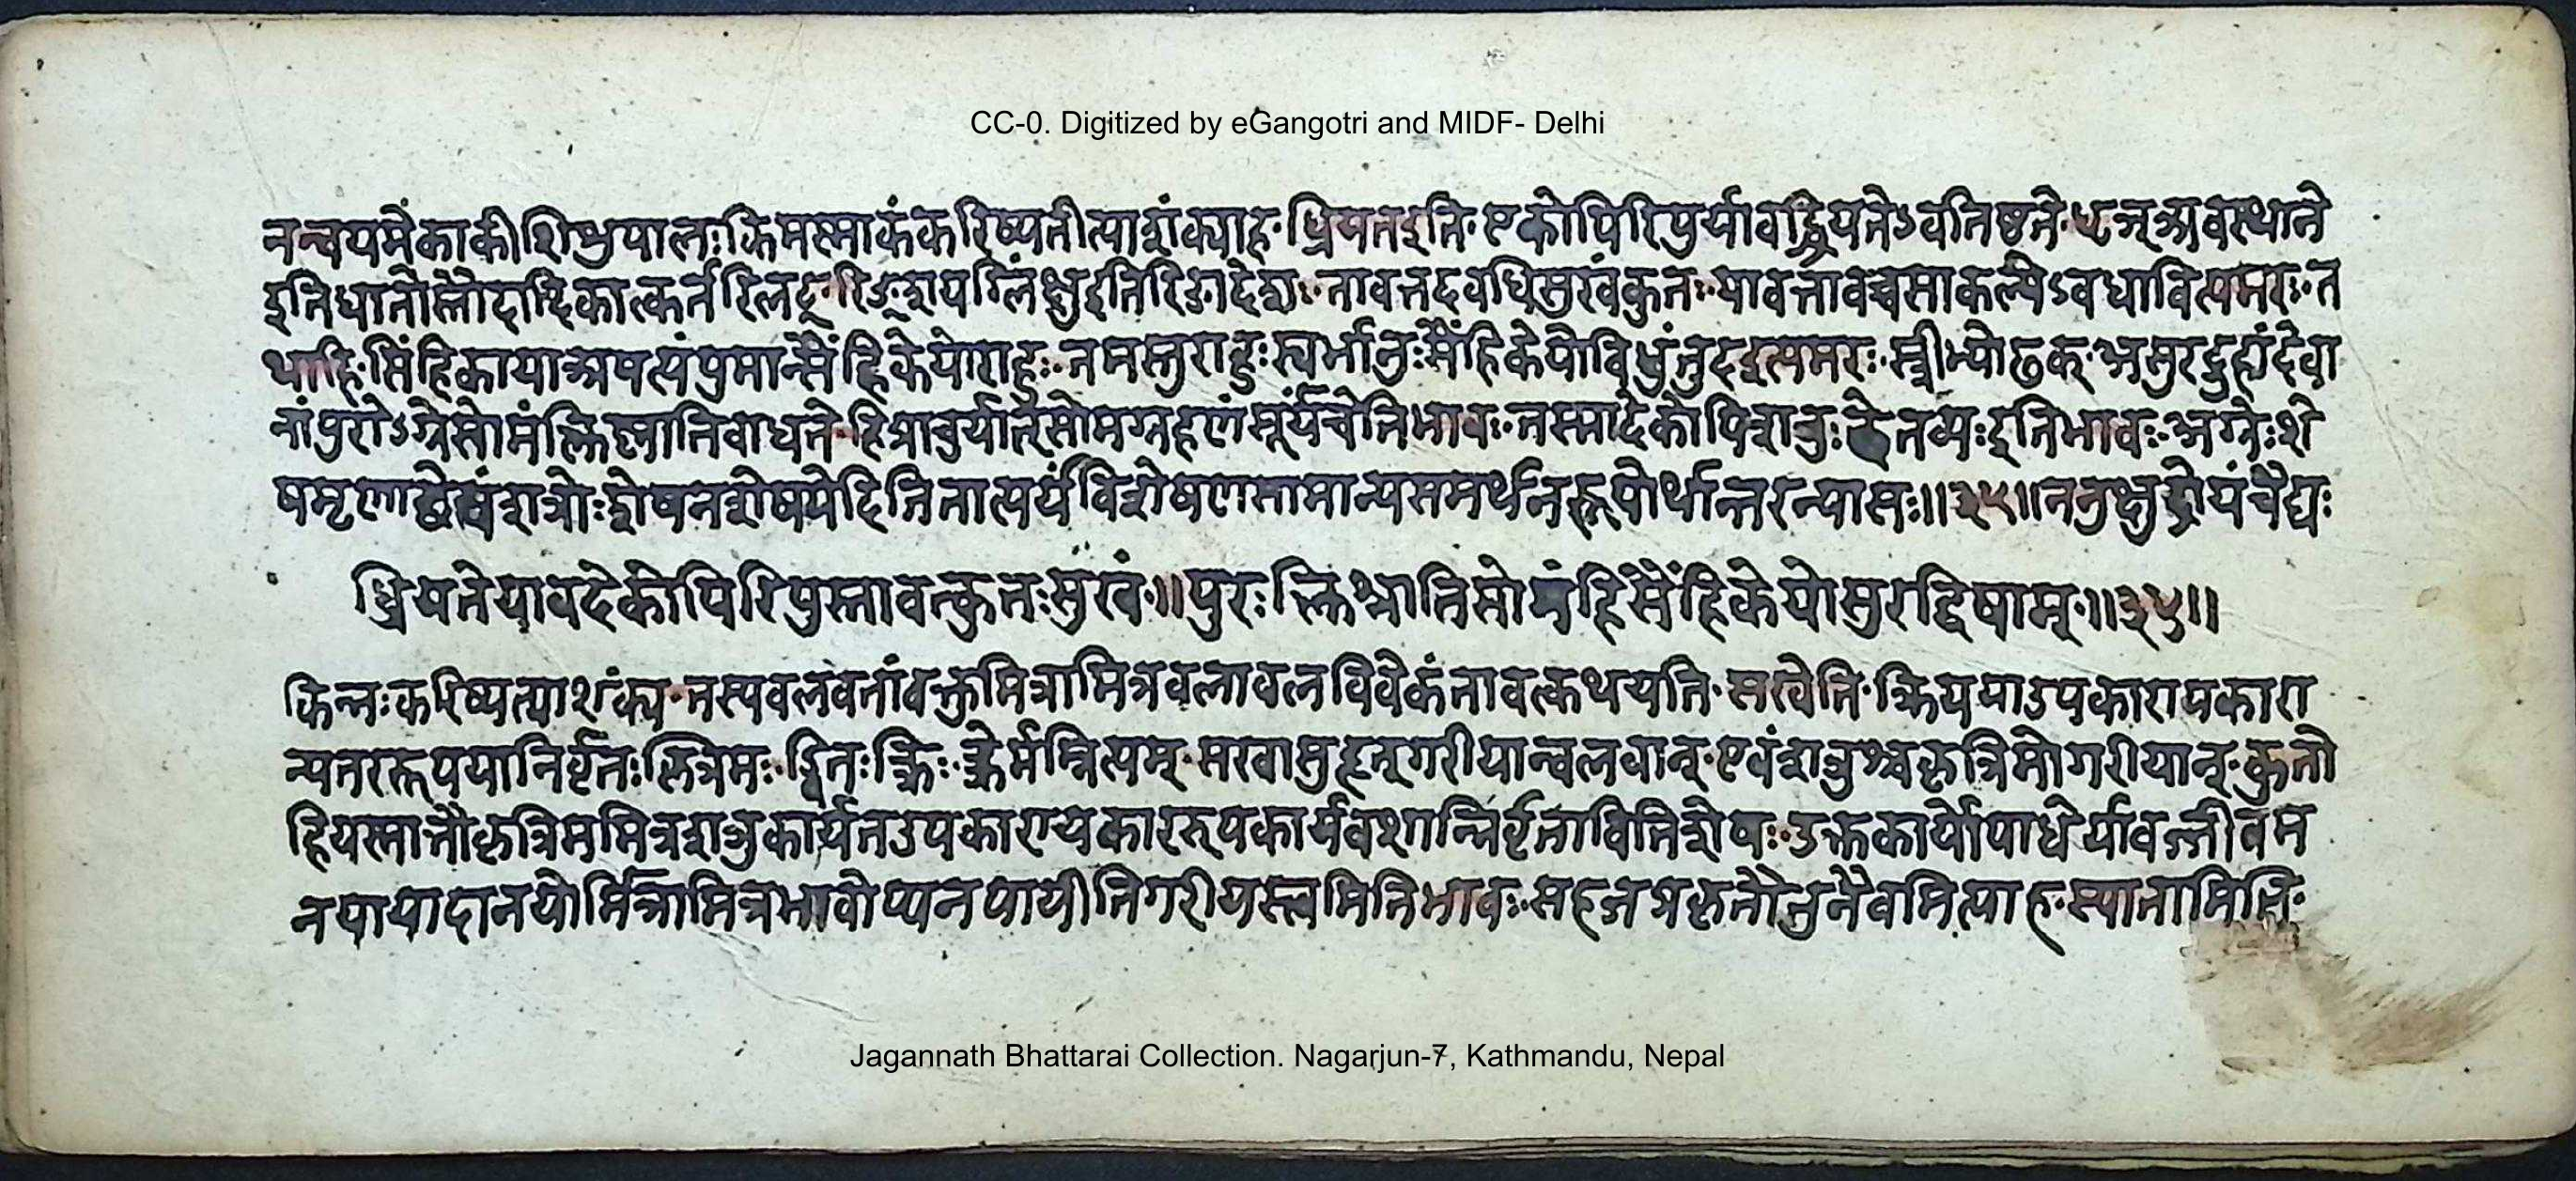 CC-0. Digitized by eGangotri and MIDF- Delhi
नन्वयमेकाकी शिशुपालः किमस्माकं करिष्यतीत्याशंक्याह ध्रियत इति एकोपि रिपुर्यावद्ध्रियतेऽवतिष्ठते धृञ् अवस्थाने
इति धातोस्तौदादिकात्कर्तरि लट् रिङ् शयग्लिंक्षु इति रिङादेशः तावत्तदवधि सुखं कुतः यावत्तावच्च साकल्येऽवधावित्यमरः त
थाहि सिंहिकाया अपत्यं पुमान्सैंहिकेयो राहुः तमस्तु राहुः स्वर्भानुः सैंहिकेयो विधुंतुद इत्यमरः स्त्रीभ्यो ढक् असुरद्रुहां देवा
नां पुरोऽग्रे सोमं क्लिश्नाति बाधते हि प्राचुर्यात्सोमग्रहणं सूर्यं चेति भावः तस्मादेकोपि शत्रुः छेतव्यः इति भावः अग्नेः शे
षमृणाच्छेषं शत्रोः शेषं न शेषयेदिति तात्पर्यं विशेषेण सामान्यसमर्थनरूपोर्थान्तरन्यासः ॥३५॥ ननु क्षुद्रोयं चैद्यः
ध्रियते यावदेकोपि रिपुस्तावत्कुतः सुखं ॥ पुरः क्लिश्नाति सोमं हि सैंहिकेयोसुरद्विषाम् ॥३५॥
किन्नः करिष्यत्याशंक्य तस्य बलवतां वक्तुं मित्रामित्रबलाबलविवेकं तावत्कथयति सखेति क्रियया उपकारापकारा
न्यतररूपया निर्वृतः क्त्रिमः ड्वितः क्त्रिः क्त्रेर्मम्नित्यम् सखा सुहृत् गरीयान्बलवान् एवं शत्रुश्च कृत्रिमो गरीयान् कुतो
हि यस्मात्तौ कृत्रिममित्रशत्रू कार्यत उपकारापकाररूपकार्यवशान्निर्वृत्ताविति शेषः उक्तकार्योपाधेर्यावज्जीवम
नपायादानयोर्मित्रामित्रभावोप्यनपायीति गरीयस्त्वमिति भावः सहजप्राकृतौ तु नैवमित्याह स्यातामिति
Jagannath Bhattarai Collection. Nagarjun-7, Kathmandu, Nepal